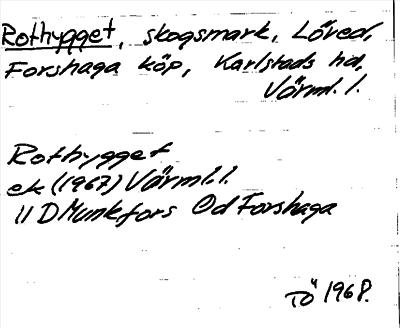 Rothygget, skogsmark, Löved,
Forshaga köp, Karlstads hd,
Värml. l.
Rothygget
ek (1967) Värml. l.
11 D Munkfors 0d Forshaga
TÖ 1968.